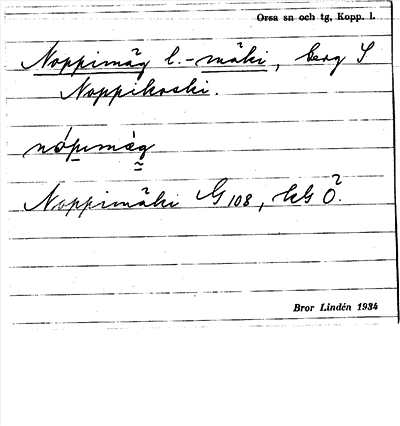 Orsa sn och tg, Kopp. l.
Noppimäg l. -mäki, berg S
Noppikoski.
nópımàg
Noppimäki G 108, kG Ö².
Bror Lindén 1934